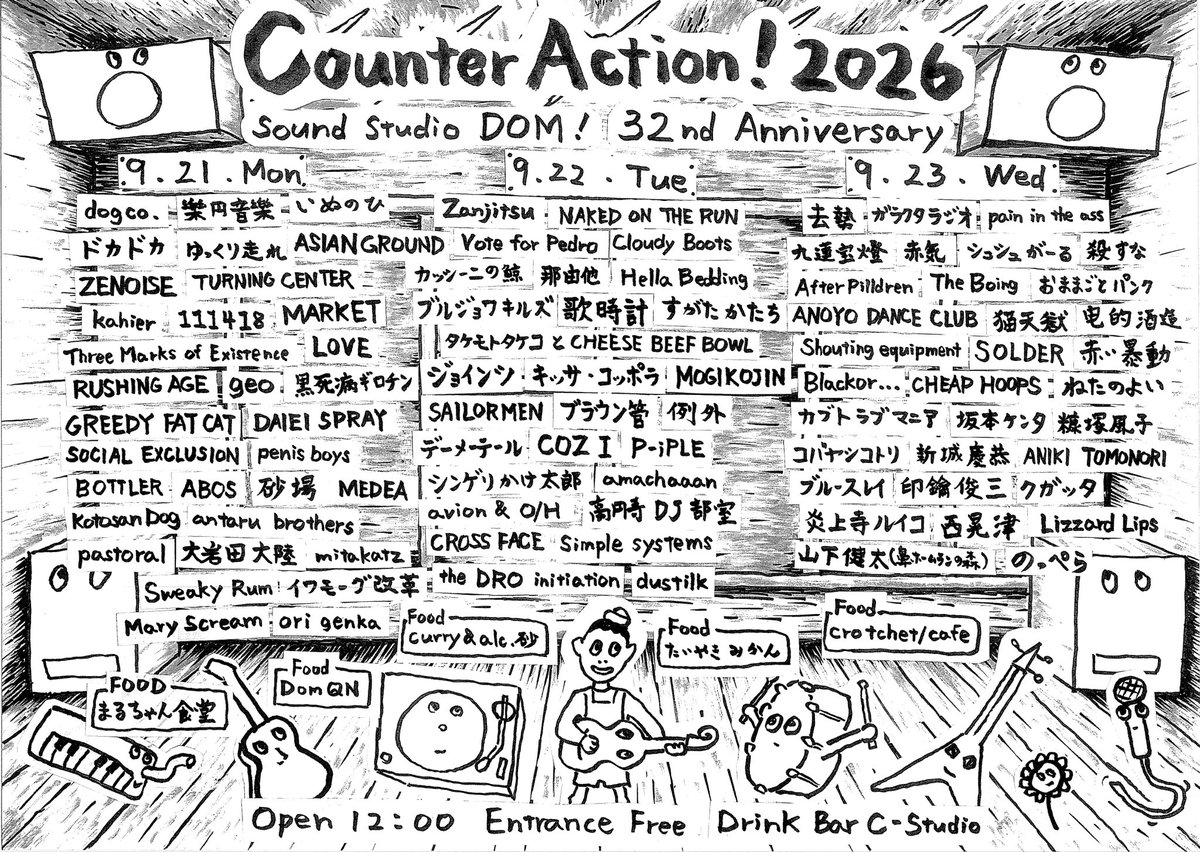 Counter Action! 2026
Sound Studio DOM! 32nd Anniversary
9.21.Mon
dogco. 楽円音樂 いぬのひ
ドカドカ ゆっくり走れ ASIANGROUND
ZENOISE TURNING CENTER
kahier 111418 MARKET
Three Marks of Existence LOVE
RUSHING AGE geo 黒死病ギロチン
GREEDY FAT CAT DAIEI SPRAY
SOCIAL EXCLUSION penis boys
BOTTLER ABOS 砂場 MEDEA
KotosanDog antaru brothers
pastoral 大岩田大陸 mitakatz
Sweaky Rum イワモーグ改革
Mary Scream ori genka
9.22.Tue
Zanjitsu NAKED ON THE RUN
Vote for Pedro Cloudy Boots
カッシーニの鯨 那由他 Hella Bedding
ブルジョワキルズ 歌時計 すがたかたち
タケモトタケコとCHEESE BEEF BOWL
ジョインシ・キッサ・コッポラ MOGIKOJIN
SAILORMEN ブラウン管 例外
デーメテール COZ I P-iPLE
シンゲリかけ太郎 amachaaan
avion & O/H 高円寺DJ部室
CROSS FACE Simple systems
the DRO initiation dustilk
9.23.Wed
去勢 ガラクタラジオ pain in the ass
九蓮宝燈 赤気 シュシュがーる 殺すな
After Pilldren The Boing おままごとパンク
ANOYO DANCE CLUB 猫天獄 电的酒造
Shouting equipment SOLDER 赤い暴動
Blackor... CHEAP HOOPS ねたのよい
カブトラブマニア 坂本ケンタ 糠塚凧子
コバヤシコトリ 新城慶恭 ANIKI TOMONORI
ブルースレイ 印鑰俊三 クガッタ
炎上寺ルイコ 西晃津 Lizzard Lips
山下健太(鼻ホームランの森) のっぺら
Food
curry&alc.砂
Food
たいやき みかん
Food
crotchet/cafe
FOOD
まるちゃん食堂
Food
DomQN
Open 12:00 Entrance Free Drink Bar C-Studio